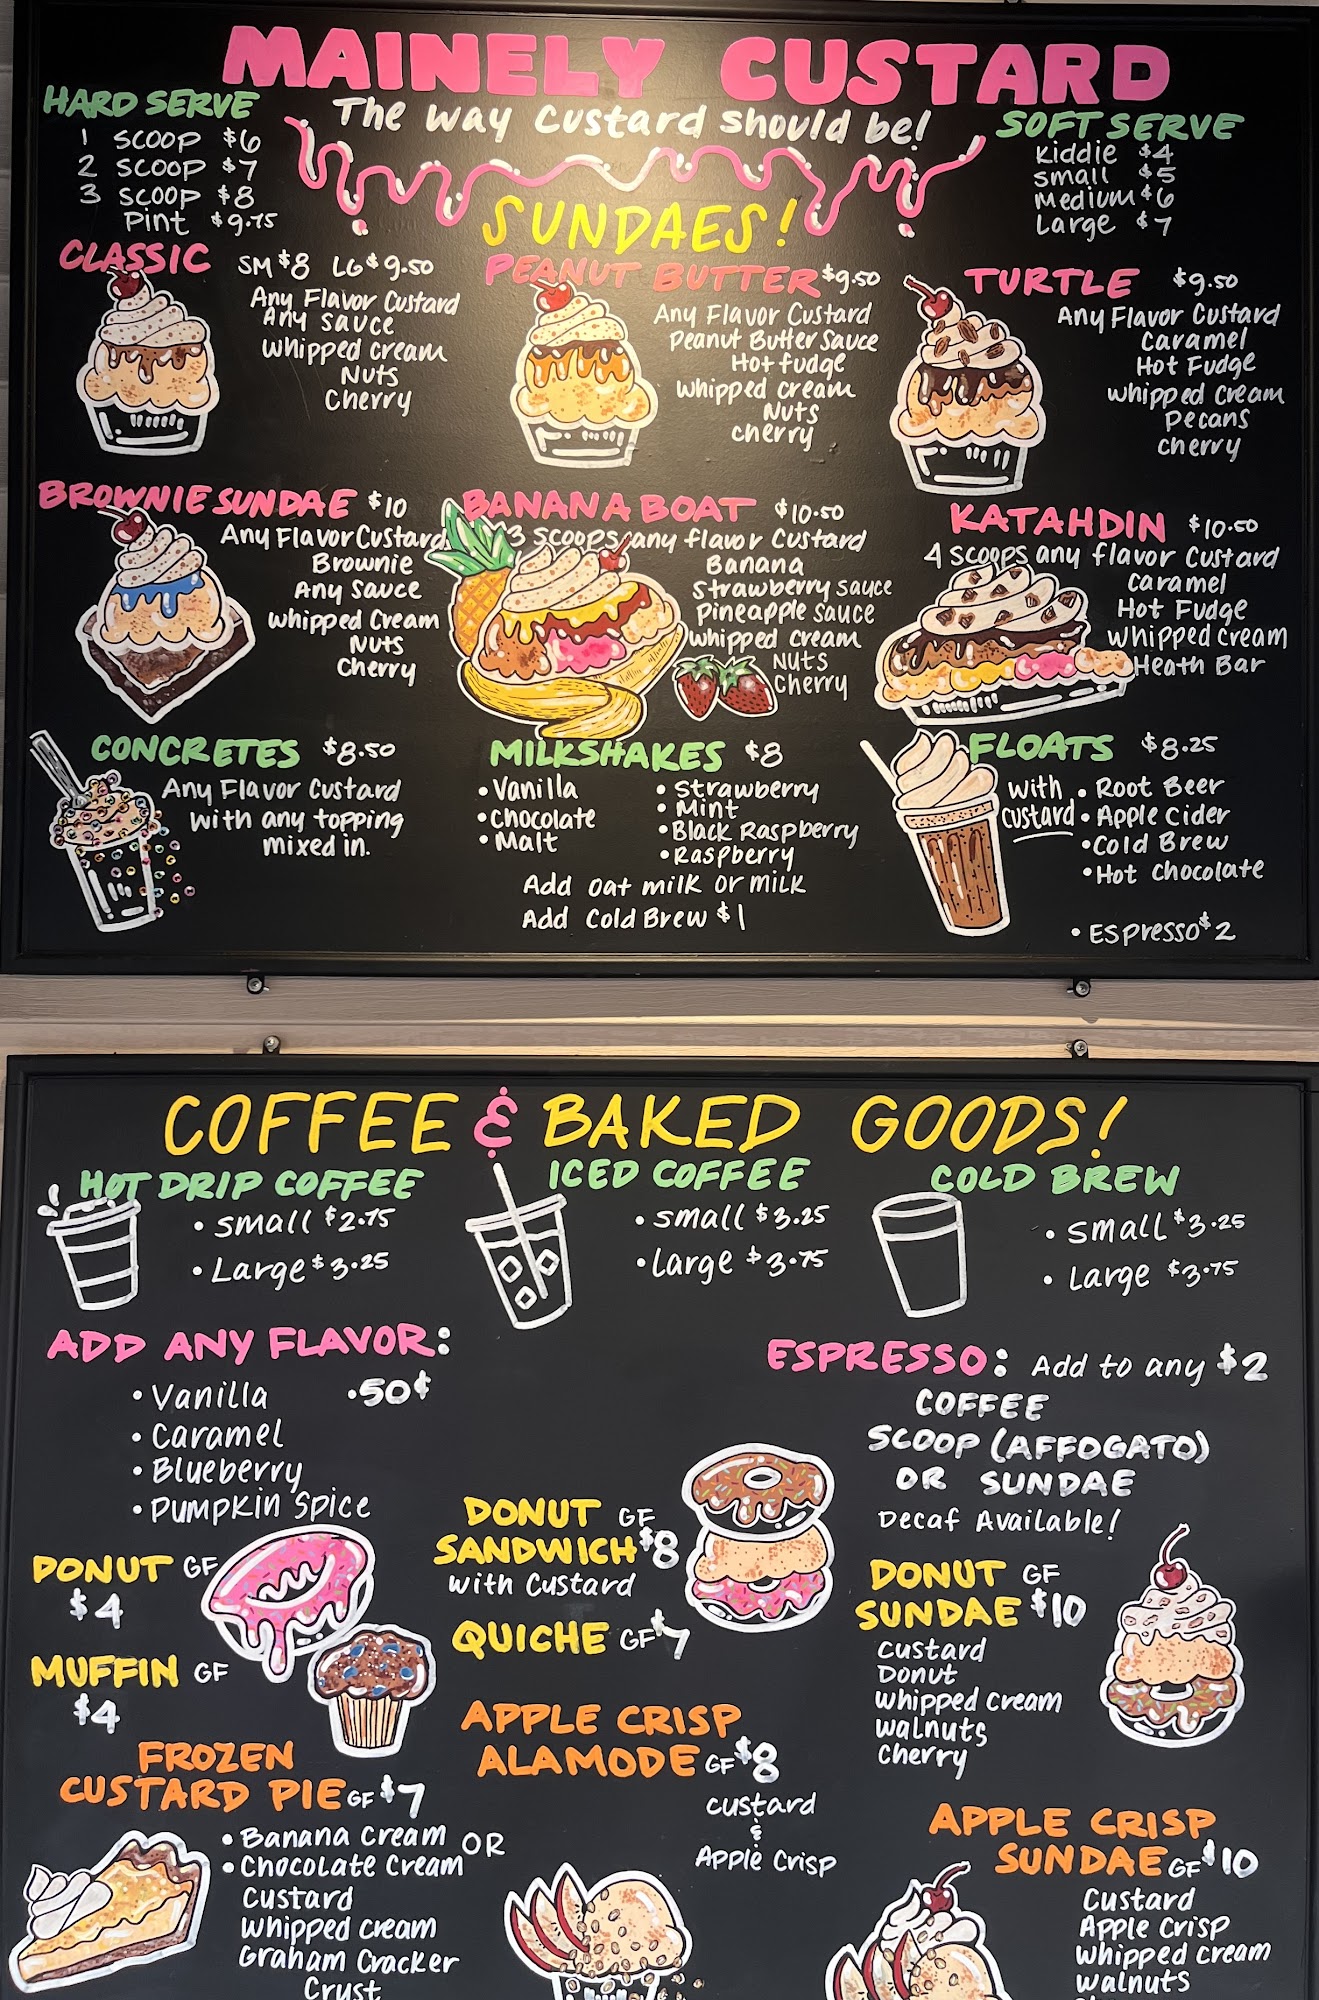 MAINELY CUSTARD
The way custard should be!
HARD SERVE
1 SCOOP $6
2 SCOOP $7
3 SCOOP $8
Pint $9.75
SOFT SERVE
Kiddie $4
small $5
Medium $6
Large $7
SUNDAES!
CLASSIC SM $8 LG $9.50
Any Flavor Custard
Any sauce
whipped cream
Nuts
Cherry
PEANUT BUTTER $9.50
Any Flavor Custard
Peanut Butter Sauce
Hot fudge
whipped cream
Nuts
cherry
TURTLE $9.50
Any Flavor Custard
Caramel
Hot Fudge
whipped cream
Pecans
cherry
BROWNIE SUNDAE $10
Any Flavor Custard
Brownie
Any Sauce
whipped Cream
Nuts
Cherry
BANANA BOAT $10.50
3 scoops any flavor Custard
Banana
Strawberry sauce
Pineapple Sauce
whipped cream
Nuts
Cherry
KATAHDIN $10.50
4 scoops any flavor Custard
Caramel
Hot Fudge
whipped cream
Heath Bar
CONCRETES $8.50
Any Flavor Custard
with any topping
mixed in.
MILKSHAKES $8
• Vanilla
• Chocolate
• Malt
• Strawberry
• Mint
• Black Raspberry
• Raspberry
Add oat milk or milk
Add Cold Brew $1
FLOATS $8.25
with custard
• Root Beer
• Apple Cider
• Cold Brew
• Hot Chocolate
• Espresso $2
COFFEE & BAKED GOODS!
HOT DRIP COFFEE
• small $2.75
• Large $3.25
ICED COFFEE
• small $3.25
• Large $3.75
COLD BREW
• small $3.25
• Large $3.75
ADD ANY FLAVOR:
• Vanilla .50¢
• Caramel
• Blueberry
• Pumpkin Spice
ESPRESSO: Add to any $2
COFFEE
SCOOP (AFFOGATO)
OR SUNDAE
Decaf Available!
DONUT GF
$4
MUFFIN GF
$4
DONUT GF
SANDWICH $8
with Custard
QUICHE GF $7
DONUT GF
SUNDAE $10
Custard
Donut
whipped cream
walnuts
Cherry
FROZEN
CUSTARD PIE GF $7
• Banana Cream OR
• Chocolate Cream
Custard
whipped cream
Graham Cracker
Crust
APPLE CRISP
ALAMODE GF $8
custard
&
Apple Crisp
APPLE CRISP
SUNDAE GF $10
Custard
Apple Crisp
whipped cream
walnuts